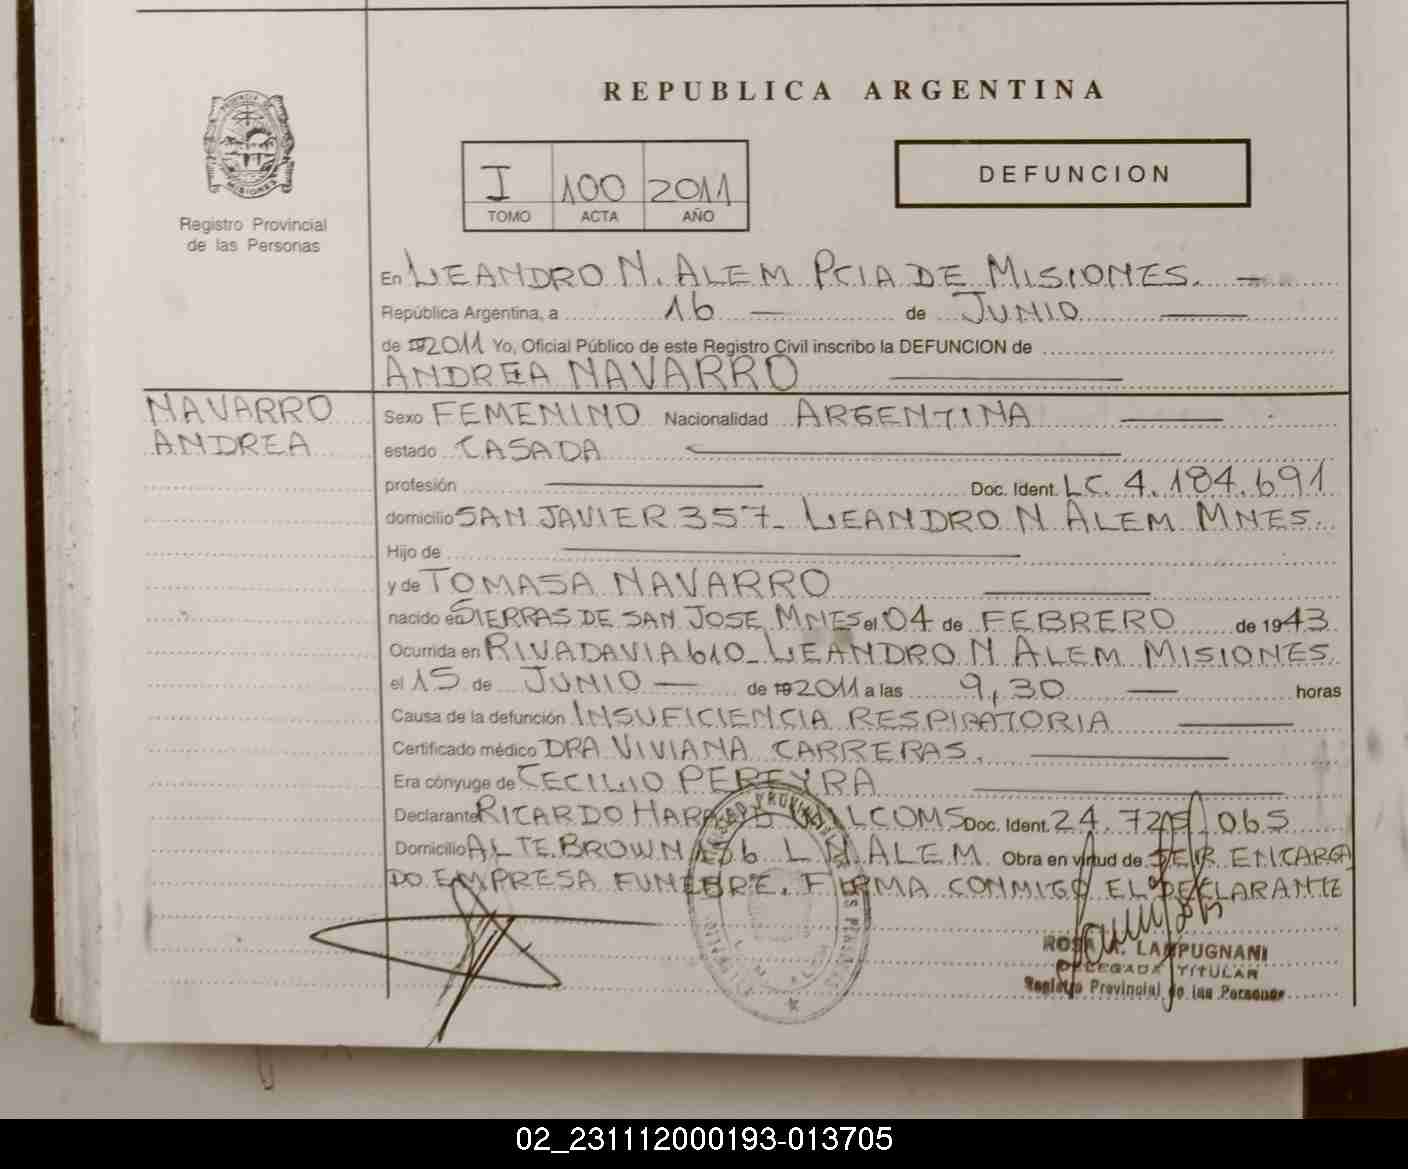 REPUBLICA ARGENTINA
PROVINCIA DE
MISIONES
Registro Provincial
de las Personas
I 100 2011
TOMO ACTA AÑO
DEFUNCION
En LEANDRO N. ALEM PCIA DE MISIONES.
República Argentina, a 16 de JUNIO
de 192011 Yo, Oficial Público de este Registro Civil inscribo la DEFUNCION de
ANDREA NAVARRO
NAVARRO
ANDREA
Sexo FEMENINO Nacionalidad ARGENTINA
estado CASADA
profesión Doc. Ident. LC. 4.184.691
domicilio SAN JAVIER 357_ LEANDRO N ALEM MNES.
Hijo de
y de TOMASA NAVARRO
nacido en SIERRAS DE SAN JOSE MNES el 04 de FEBRERO de 1943
Ocurrida en RIVADAVIA 610_ LEANDRO N ALEM MISIONES
el 15 de JUNIO de 192011 a las 9,30 horas
Causa de la defunción INSUFICIENCIA RESPIRATORIA
Certificado médico DRA VIVIANA CARRERAS.
Era cónyuge de CECILIO PEREYRA
Declarante RICARDO Doc. Ident. 24.72 .065
Domicilio ALTE. BROWN L N ALEM. Obra en virtud de SER ENCARGA
DO EMPRESA FUNEBRE. FIRMA CONMIGO EL DECLARANTE
ROSA A. LAMPUGNANI
DELEGADA TITULAR
Registro Provincial de las Personas
02_231112000193-013705